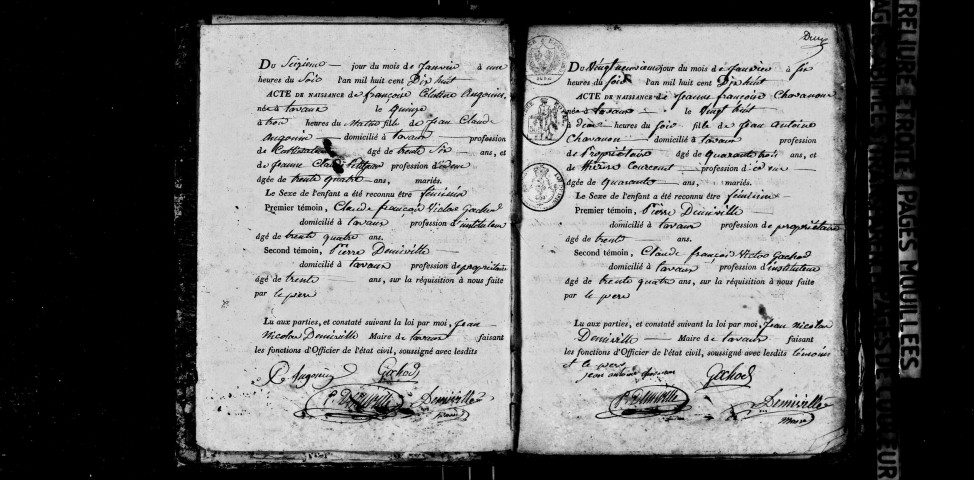 Du Seizieme jour du mois de Janvier à une
heures du Soir l'an mil huit cent Dix huit
ACTE DE NAISSANCE de françoise Claudine Angonin
née à tavaux le quinze
à trois heures du Matin fille de Jean Claude
Angonin domicilié à tavaux profession
de âgé de trente Six ans, et
de Jeanne profession d'idem
âgée de trente quatre ans, mariés.
Le Sexe de l'enfant a été reconnu être féminin
Premier témoin, Claude françois Victor Gachod
domicilié à tavaux profession d'instituteur
âgé de trente quatre ans.
Second témoin, Pierre Demiville
domicilié à tavaux profession de propriétaire
âgé de trente ans, sur la réquisition à nous faite
par le père
Lu aux parties, et constaté suivant la loi par moi, Jean
Nicolas Demiville Maire de tavaux faisant
les fonctions d'Officier de l'état civil, soussigné avec lesdits
Gachod
Demiville
maire
Deux
Du Vingt neuvieme jour du mois de Janvier à six
heures du soir l'an mil huit cent Dix huit
ACTE DE NAISSANCE de Jeanne françoise Chavanon
née à tavaux le Vingt huit
à heures du soir fille de Jean Antoine
Chavanon domicilié à tavaux profession
de Propriétaire âgé de Quarante trois ans, et
de Courcout profession d'idem
âgée de Quarante ans, mariés.
Le Sexe de l'enfant a été reconnu être féminin
Premier témoin, Pierre Demiville
domicilié à tavaux profession de propriétaire
âgé de trente ans.
Second témoin, Claude françois Victor Gachod
domicilié à tavaux profession d'instituteur
âgé de trente quatre ans, sur la réquisition à nous faite
par le père
Lu aux parties, et constaté suivant la loi par moi, Jean Nicolas
Demiville Maire de tavaux faisant
les fonctions d'Officier de l'état civil, soussigné avec lesdits témoins
et le père
jean antoine
Gachod
Demiville
maire
RELIURE ETROITE (PAGES MOUILLEES